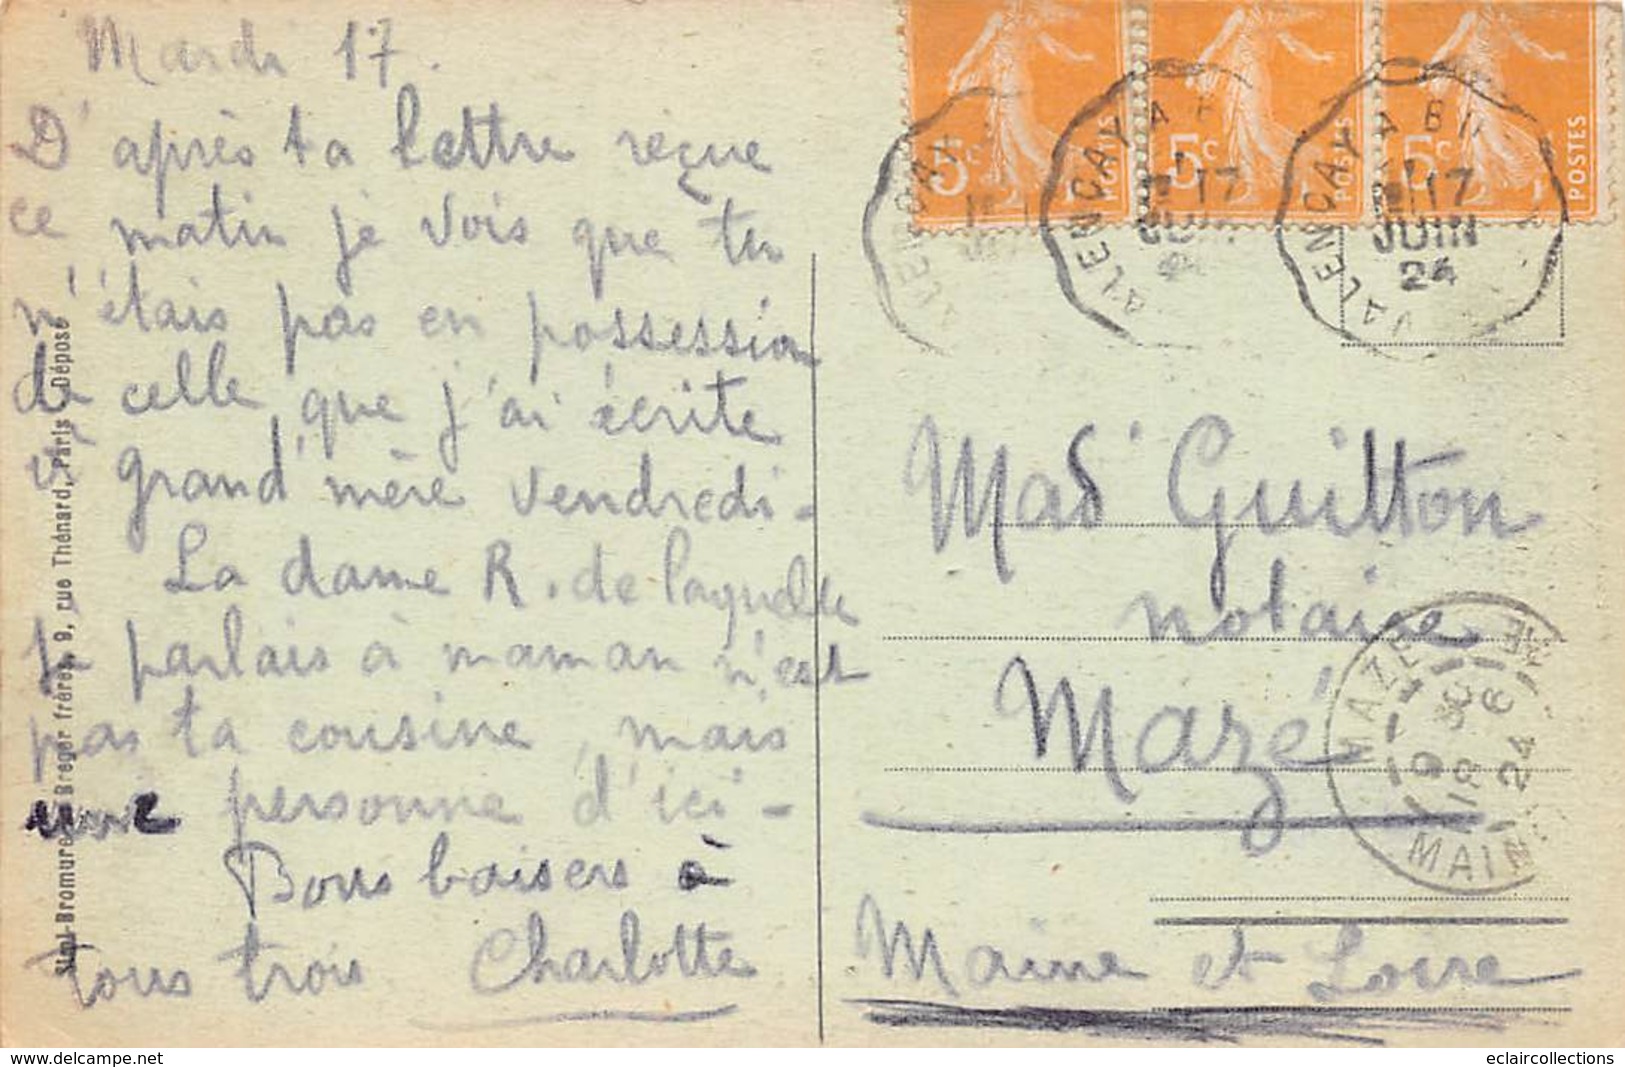 Mardi 17.
D'après ta lettre reçue
ce matin je vois que tu
n'étais pas en possession
de celle que j'ai écrite
à grand'mère vendredi -
La dame R. de laquelle
je parlais à maman n'est
pas ta cousine, mais
une personne d'ici -
Bons baisers à
tous trois Charlotte
Bromure Breger frères, 9, rue Thénard, Paris Déposé
5c POSTES
5c POSTES
5c POSTES
VALENCAY A B
17
JUIN
24
Mad' Guitton
notaire
Mazé
Maine et Loire
MAZÉ
MAINE
24
delcampe.net
eclaircollections